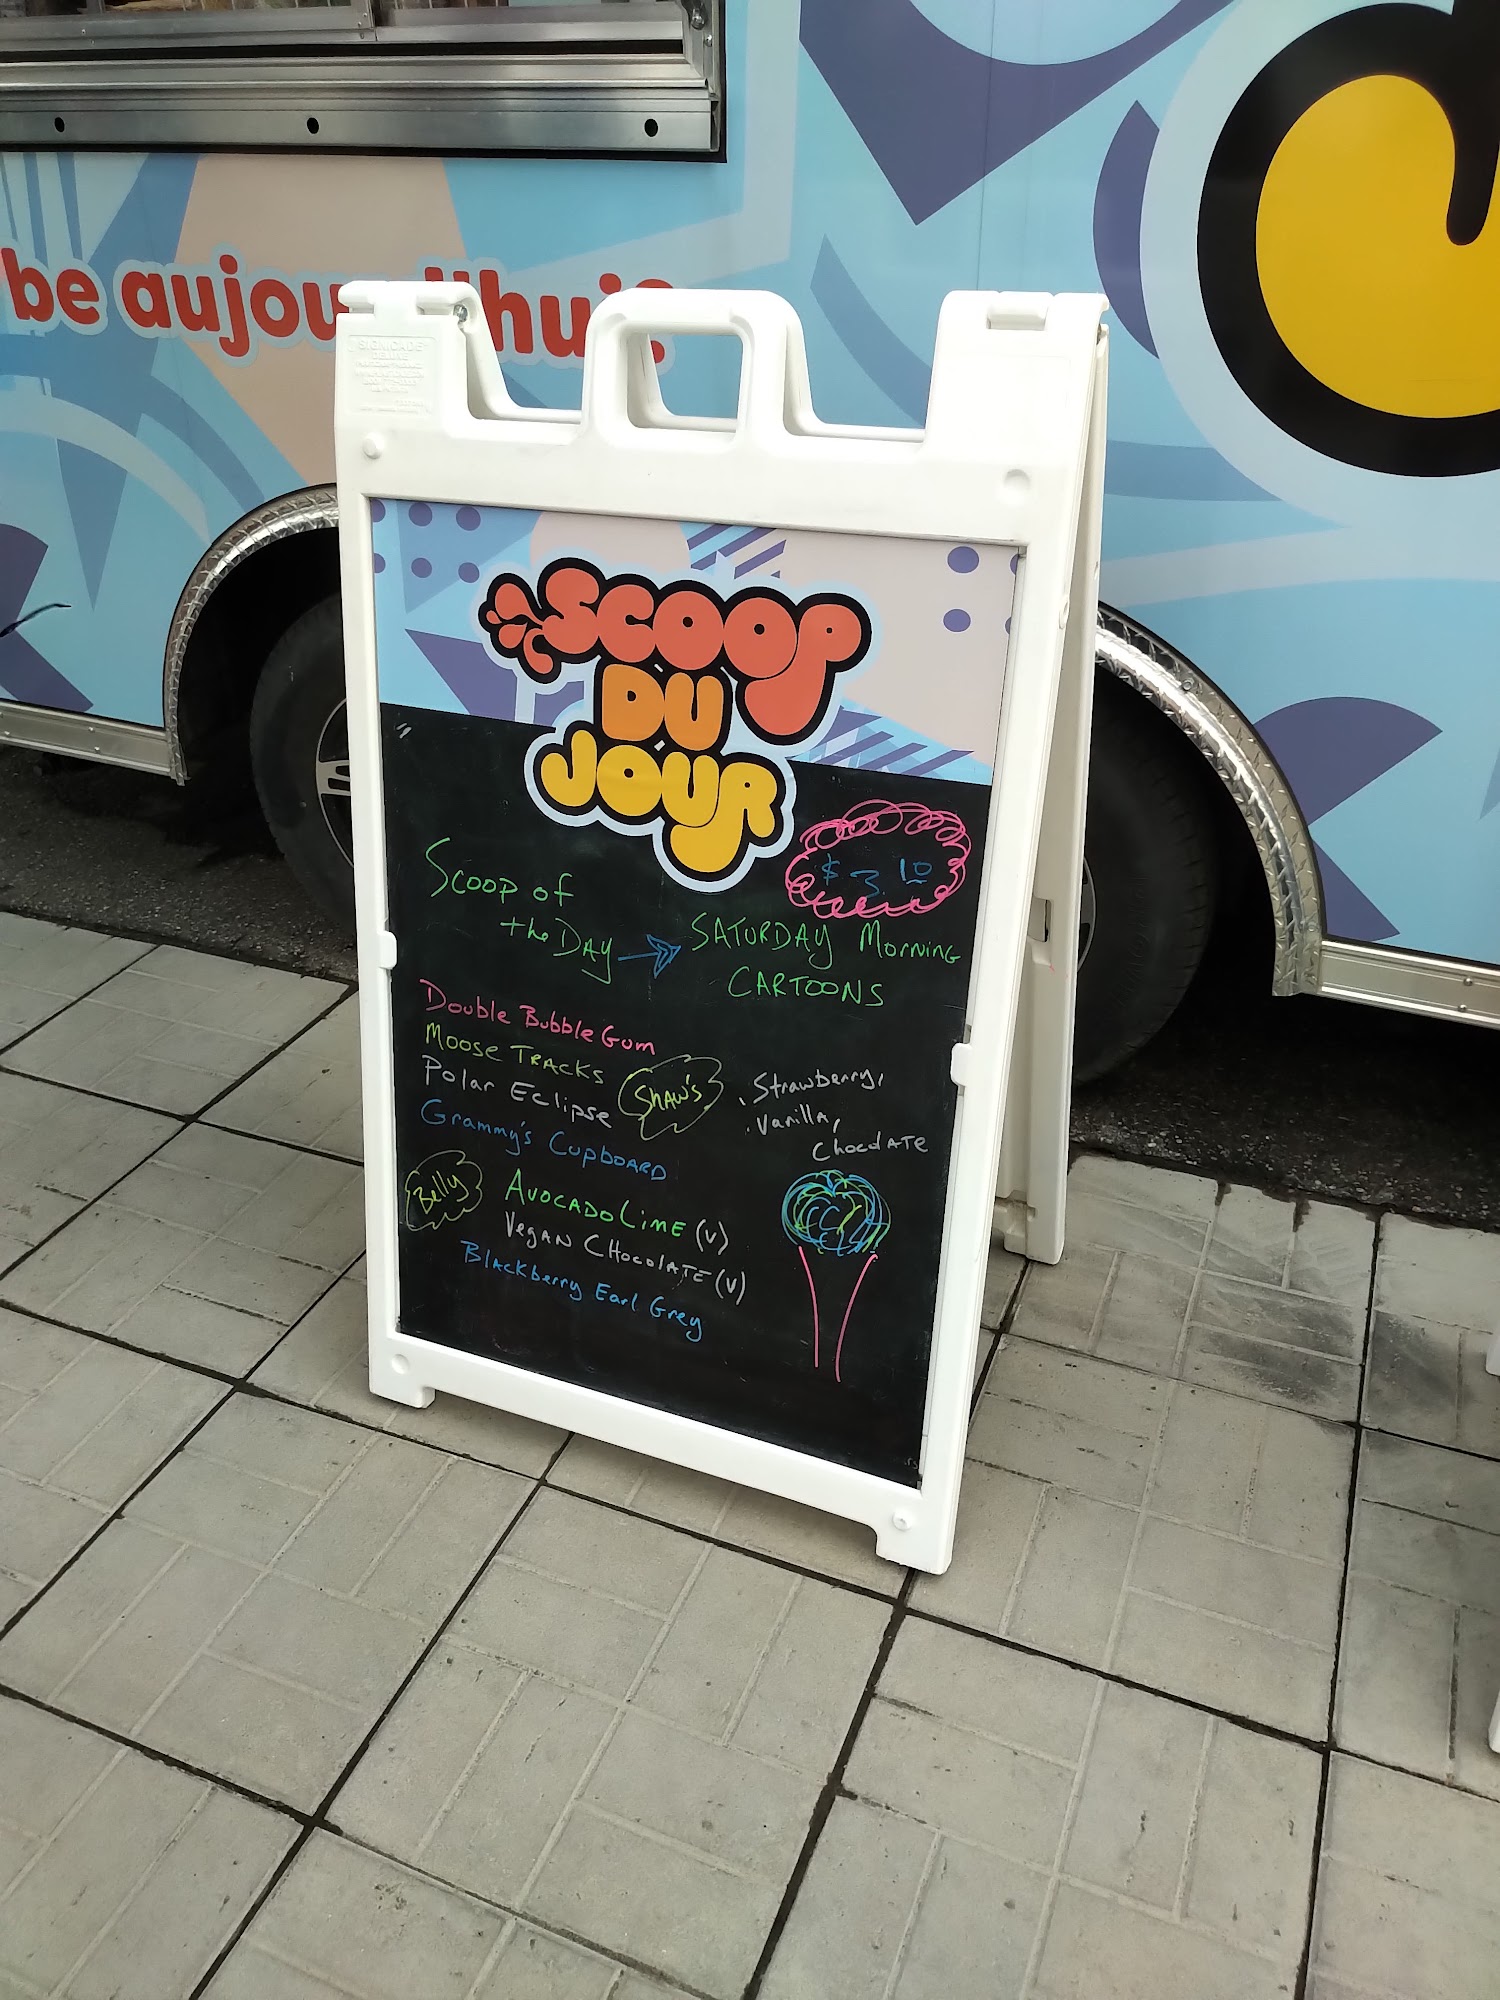 be aujou d'hui?
SIGNICADE
DELUXE
SCOOP
DU
JOUR
$ 3.10
Scoop of
the Day → SATURDAY Morning
CARTOONS
Double Bubble Gum
Moose Tracks
Polar Eclipse
Shaw's
Grammy's Cupboard
. Strawberry,
. Vanilla,
Chocolate
Belly
Avocado Lime (v)
Vegan Chocolate (v)
Blackberry Earl Grey